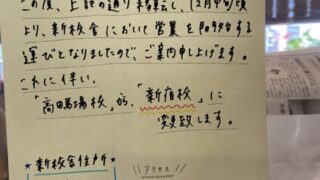 この度、上記の通り移転し、12月中旬頃
より、新校舎において営業を開始する
運びとなりましたので、ご案内申し上げます。
これに伴い、
「高田馬場校」から「新宿校」に
変更致します。
★新校舎住所★
アクセス